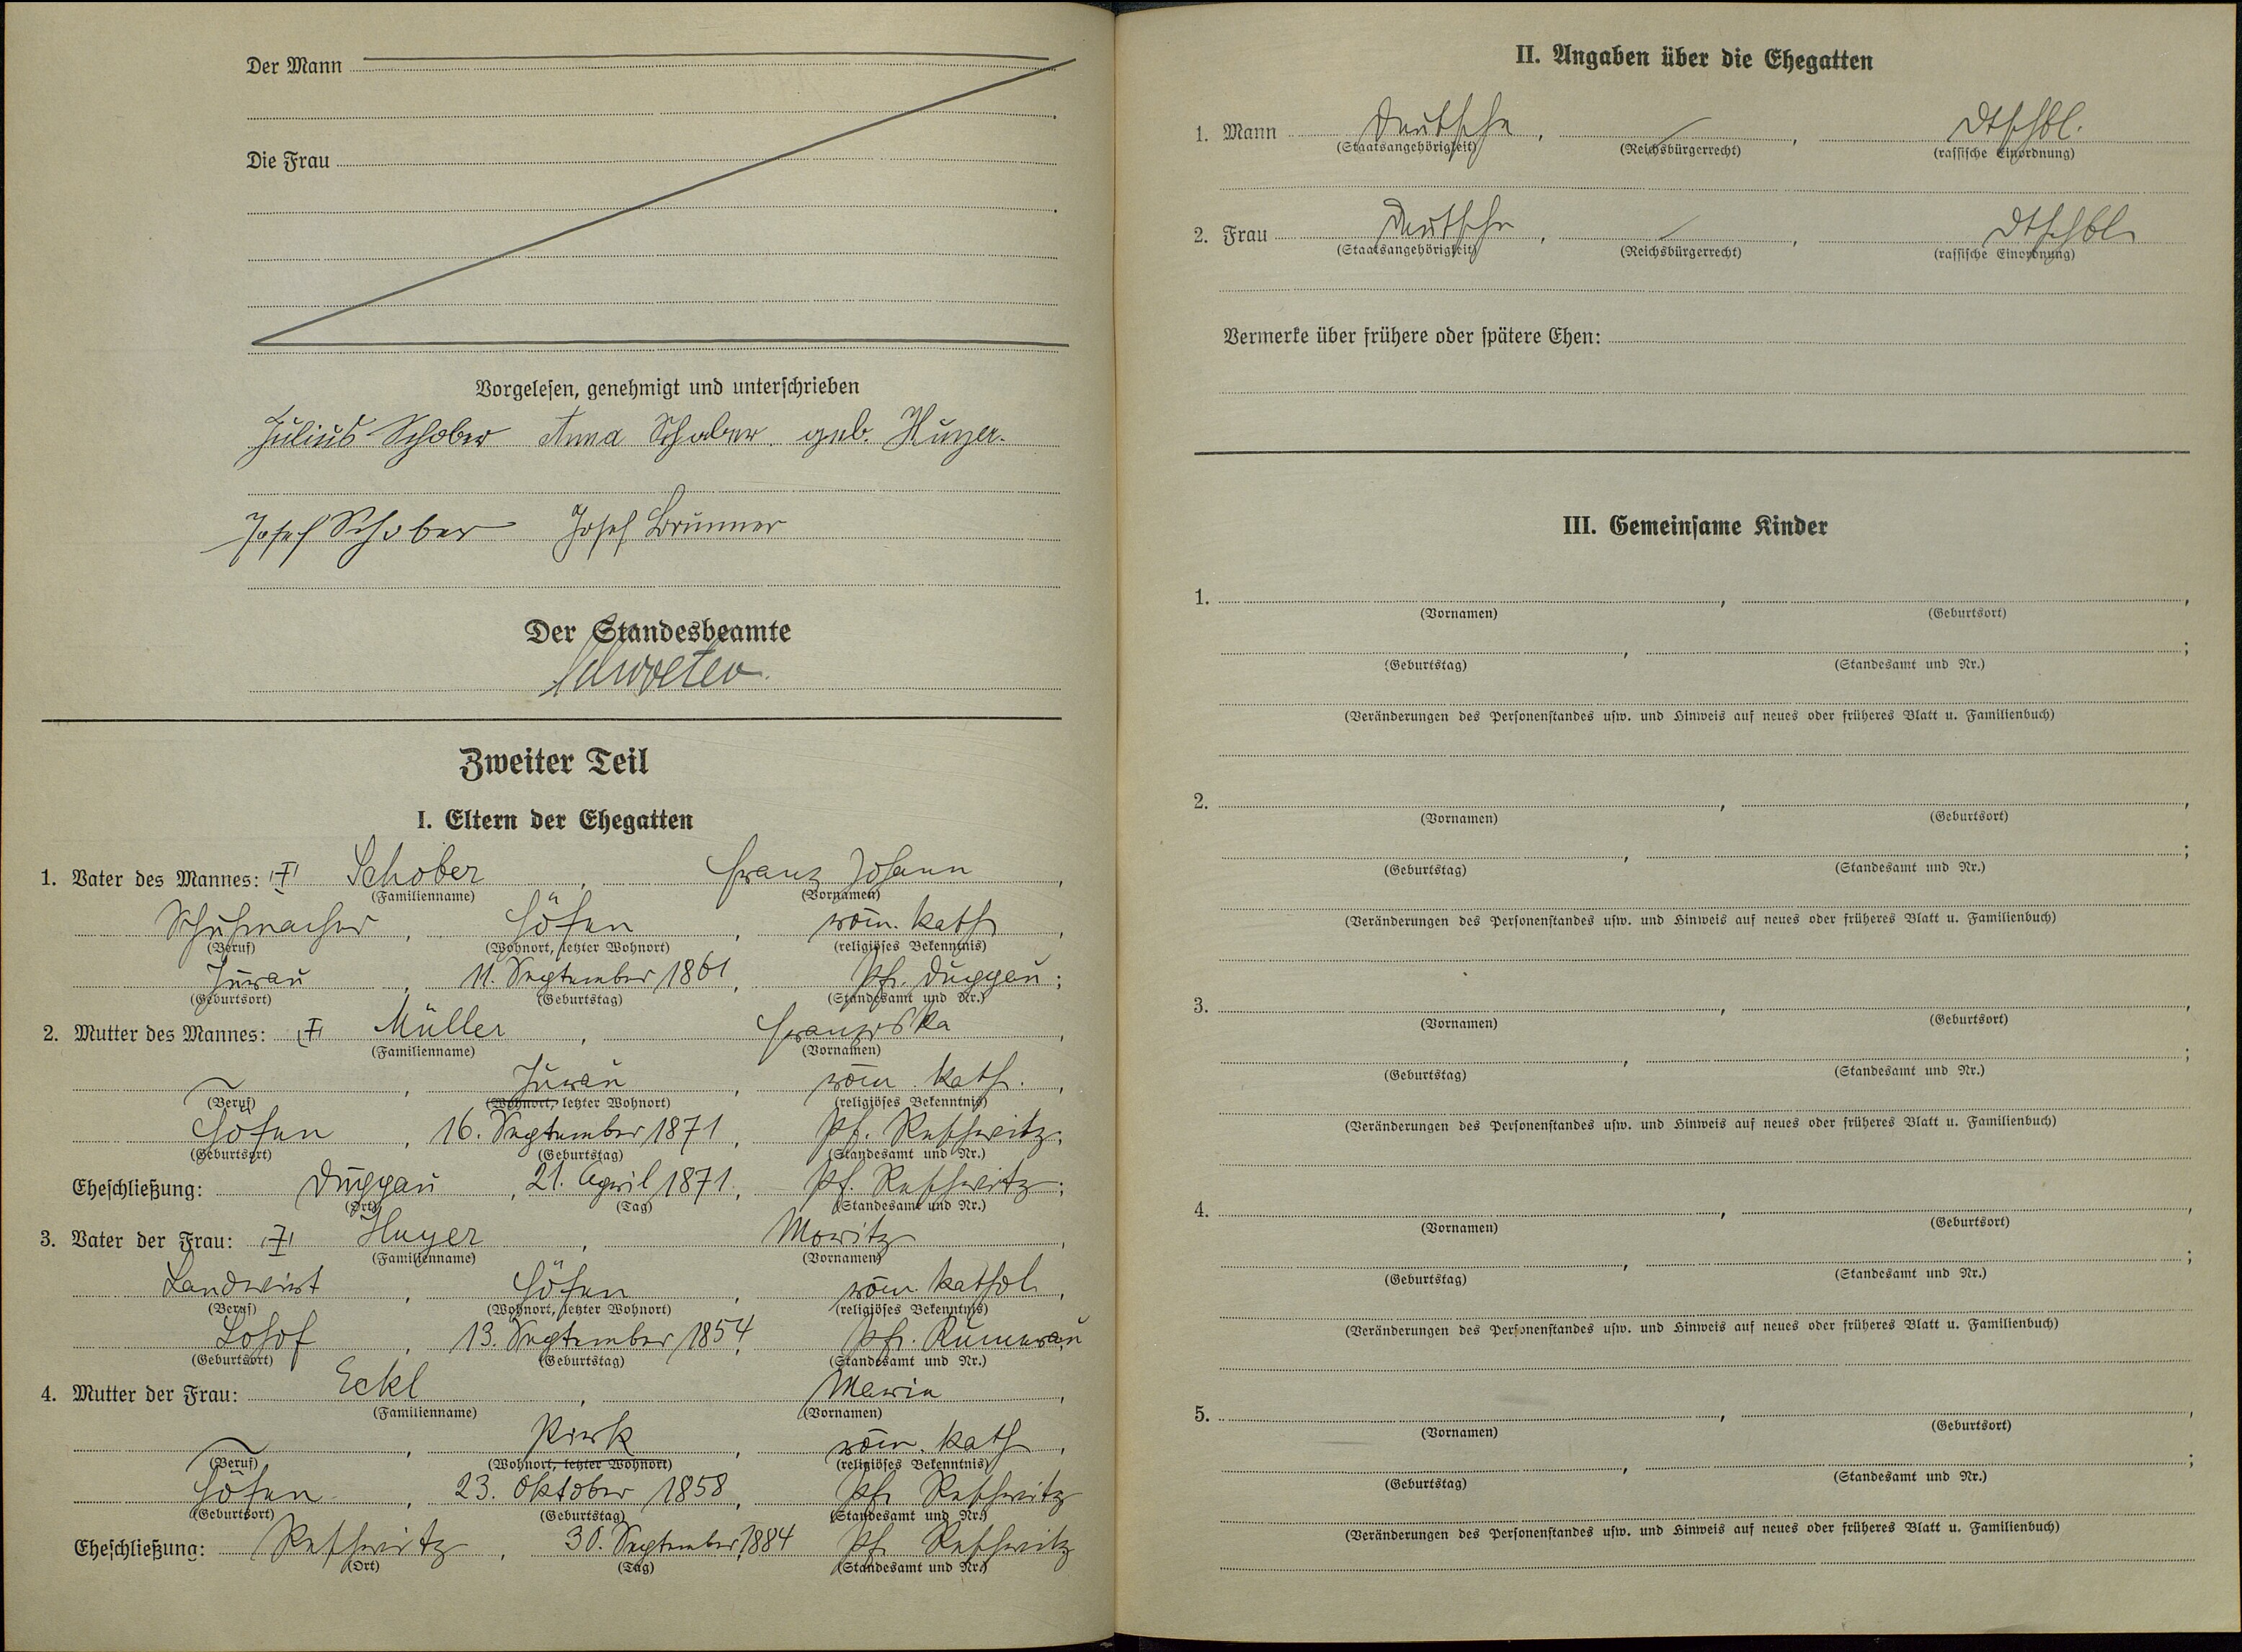 Der Mann
Die Frau
Vorgelesen, genehmigt und unterschrieben
Julius Schober Anna Schober geb. Huyer.
Josef Schober Josef Brunner
Der Standesbeamte
Zweiter Teil
I. Eltern der Ehegatten
1. Vater des Mannes: Schober, Franz Johann,
(Familienname) (Vornamen)
Schuhmacher, Höfen, röm. kath,
(Beruf) (Wohnort, letzter Wohnort) (religiöses Bekenntnis)
11. September 1861, Pf. Duppau;
(Geburtsort) (Geburtstag) (Standesamt und Nr.)
2. Mutter des Mannes: Müller, Franziska,
(Familienname) (Vornamen)
röm. kath.,
(Beruf) (Wohnort, letzter Wohnort) (religiöses Bekenntnis)
Höfen, 16. September 1871, Pf. Retschwitz;
(Geburtsort) (Geburtstag) (Standesamt und Nr.)
Eheschließung: Duppau, 21. April 1871, Pf. Retschwitz;
(Ort) (Tag) (Standesamt und Nr.)
3. Vater der Frau: Huyer, Moritz,
(Familienname) (Vornamen)
Landwirt, Höfen, röm. kathol,
(Beruf) (Wohnort, letzter Wohnort) (religiöses Bekenntnis)
13. September 1854,
(Geburtsort) (Geburtstag) (Standesamt und Nr.)
4. Mutter der Frau: Eckl, Maria,
(Familienname) (Vornamen)
Pirk, röm. kath,
(Beruf) (Wohnort, letzter Wohnort) (religiöses Bekenntnis)
Höfen, 23. Oktober 1858, Pf. Retschwitz
(Geburtsort) (Geburtstag) (Standesamt und Nr.)
Eheschließung: Retschwitz, 30. September 1884 Pf. Retschwitz
(Ort) (Tag) (Standesamt und Nr.)
II. Angaben über die Ehegatten
1. Mann Deutsche, , dtschbl.
(Staatsangehörigkeit) (Reichsbürgerrecht) (rassische Einordnung)
2. Frau Deutsche, , dtschbl.
(Staatsangehörigkeit) (Reichsbürgerrecht) (rassische Einordnung)
Vermerke über frühere oder spätere Ehen:
III. Gemeinsame Kinder
1. , ,
(Vornamen) (Geburtsort)
, ;
(Geburtstag) (Standesamt und Nr.)
(Veränderungen des Personenstandes usw. und Hinweis auf neues oder früheres Blatt u. Familienbuch)
2. , ,
(Vornamen) (Geburtsort)
, ;
(Geburtstag) (Standesamt und Nr.)
(Veränderungen des Personenstandes usw. und Hinweis auf neues oder früheres Blatt u. Familienbuch)
3. , ,
(Vornamen) (Geburtsort)
, ;
(Geburtstag) (Standesamt und Nr.)
(Veränderungen des Personenstandes usw. und Hinweis auf neues oder früheres Blatt u. Familienbuch)
4. , ,
(Vornamen) (Geburtsort)
, ;
(Geburtstag) (Standesamt und Nr.)
(Veränderungen des Personenstandes usw. und Hinweis auf neues oder früheres Blatt u. Familienbuch)
5. , ,
(Vornamen) (Geburtsort)
, ;
(Geburtstag) (Standesamt und Nr.)
(Veränderungen des Personenstandes usw. und Hinweis auf neues oder früheres Blatt u. Familienbuch)